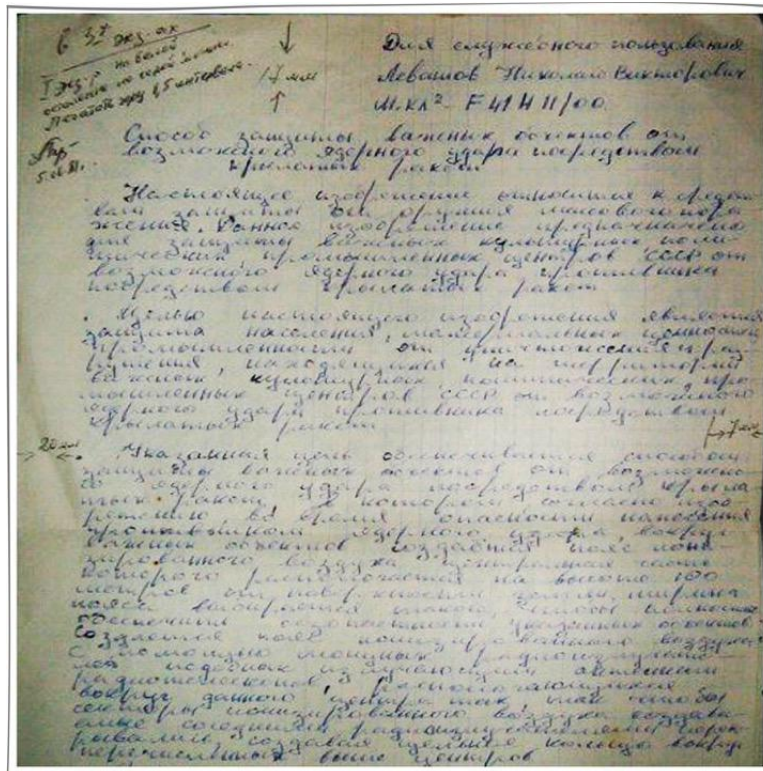 в 3х экз-ах
I экз-р на белой
Печатать через 1,5 интервала.
17 мм
Для служебного пользования
Левашов Николай Викторович
М.кл² F 41 H 11/00
Способ защиты важных объектов от
возможного ядерного удара посредством
крылатых ракет
Настоящее изобретение относится к средст-
вам защиты от оружия массового пора-
жения. Данное изобретение предназначено
для защиты важных культурных, поли-
тических, промышленных центров СССР от
возможного ядерного удара противника
посредством крылатых ракет
Целью настоящего изобретения является
защита населения, материальных ценностей,
промышленности от уничтожения и раз-
рушения, находящихся на территории
важных культурных, политических, про-
мышленных центров СССР от возможного
ядерного удара противника посредством
крылатых ракет
7 мм
20 мм
Указанная цель обеспечивается способом
защиты важных объектов от возможно-
го ядерного удара посредством крыла-
тых ракет, в котором согласно изоб-
ретению во время опасности нанесения
противником ядерного удара, вокруг
важных объектов создаётся пояс иони-
зированного воздуха, центральная часть
которого располагается на высоте 100
метров от поверхности земли, ширина
пояса выбирается такого, чтобы
обеспечить безопасность указанных объектов.
Создаётся пояс ионизированного воздуха
с помощью мощных радиоизлучате-
лей подобных излучающим антеннам
радиотелескопов, располагающихся
вокруг данного центра так, чтобы
секторы ионизированного воздуха создава-
емые соседними радиоизлучателями перек-
рывались, создавая цельное кольцо вокруг
перечисленных выше центров